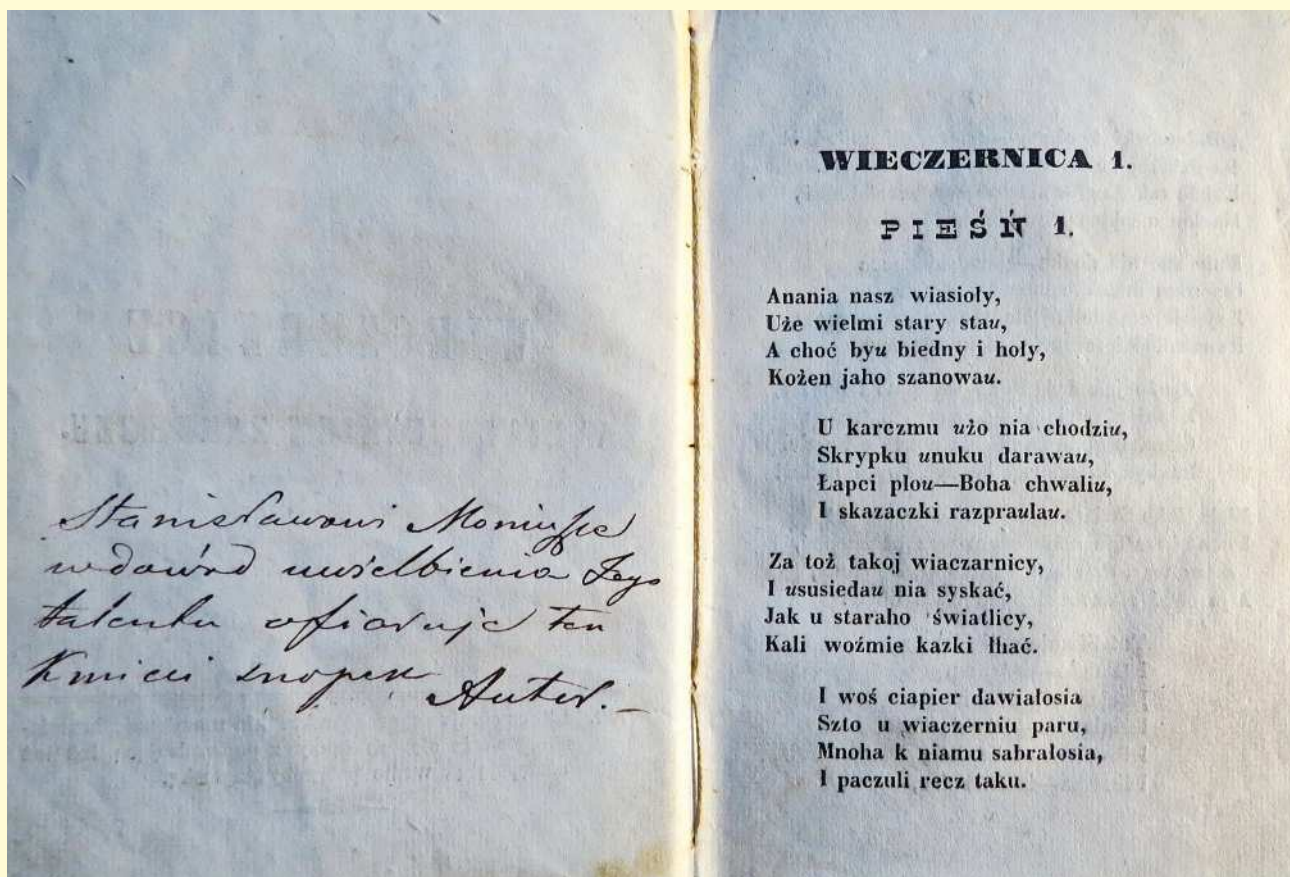 Stanisławowi Moniuszce
w dowód uwielbienia Jego
talentu ofiaruje ten
Kmieci snopek
Autor.
WIECZERNICA 1.
PIEŚŃ 1.
Anania nasz wiasioły,
Uże wielmi stary stau,
A choć byu biedny i hoły,
Kożen jaho szanowau.
U karczmu użo nia chodziu,
Skrypku unuku darawau,
Łapci plou—Boha chwaliu,
I skazaczki razpraulau.
Za toż takoj wiaczarnicy,
I ususiedau nia syskać,
Jak u staraho światlicy,
Kali woźmie kazki łhać.
I woś ciapier dawiałosia
Szto u wiaczerniu paru,
Mnoha k niamu sabrałosia,
I paczuli recz taku.